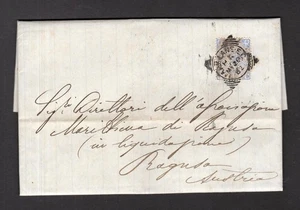 Sig.ri Direttori dell'Associazione
Marittima di Ragusa
(in liquidazione)
Ragusa
Austria